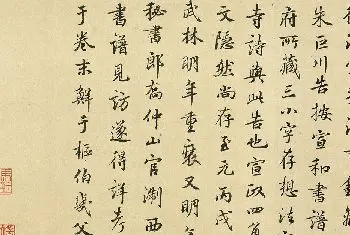 朱巨川告按宣和書譜
府所藏三小字存想法
寺詩與此告也宣政四
文隱然尚存至元丙戌
武林明年重裝又明年
秘書郎喬仲山官淛西
書譜見訪遂得詳考
于卷末鮮于樞伯幾父